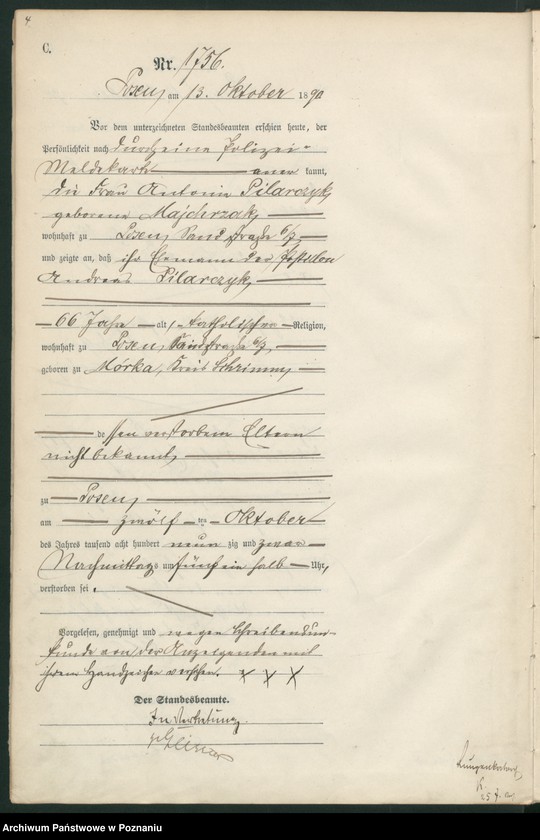 4
C.
Nr. 1756.
Posen, am 13. Oktober 1890
Vor dem unterzeichneten Standesbeamten erschien heute, der
Persönlichkeit nach durch eine Polizei-
Meldekarte aner kannt,
die Frau Antonie Pilarczyk,
geborene Majchrzak,
wohnhaft zu Posen, Sandstraße 6/7,
und zeigte an, daß ihr Ehemann der
Andreas Pilarczyk,
66 Jahre alt, katholischer Religion,
wohnhaft zu Posen, Sandstraße 6/7,
geboren zu Mórka, Kreis Schrimm,
dessen verstorbene Eltern
nicht bekannt,
zu Posen,
am zwölf ten Oktober
des Jahres tausend acht hundert neun zig und zwar
Nachmittags um fünf ein halb Uhr,
verstorben sei.
Vorgelesen, genehmigt und wegen Schreibensun-
kunde von der Anzeigenden mit
ihrem Handzeichen versehen. x x x
Der Standesbeamte.
In Vertretung.
Lungenkatarrh
Archiwum Państwowe w Poznaniu